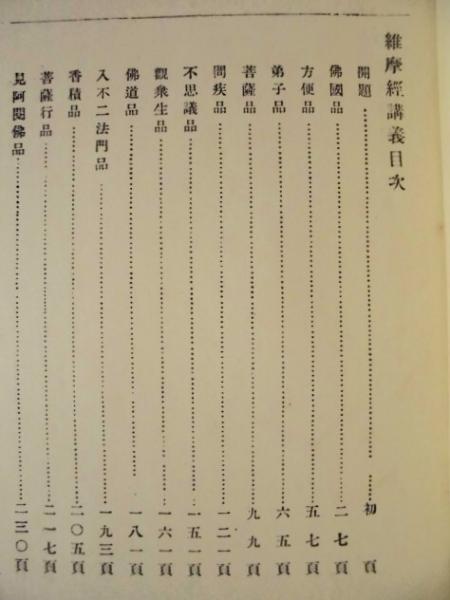 維摩經講義目次
開題……初頁
佛國品……二七頁
方便品……五七頁
弟子品……六五頁
菩薩品……九九頁
問疾品……一二一頁
不思議品……一五一頁
觀衆生品……一六一頁
佛道品……一八一頁
入不二法門品……一九三頁
香積品……二〇五頁
菩薩行品……二一七頁
見阿閦佛品……二三〇頁